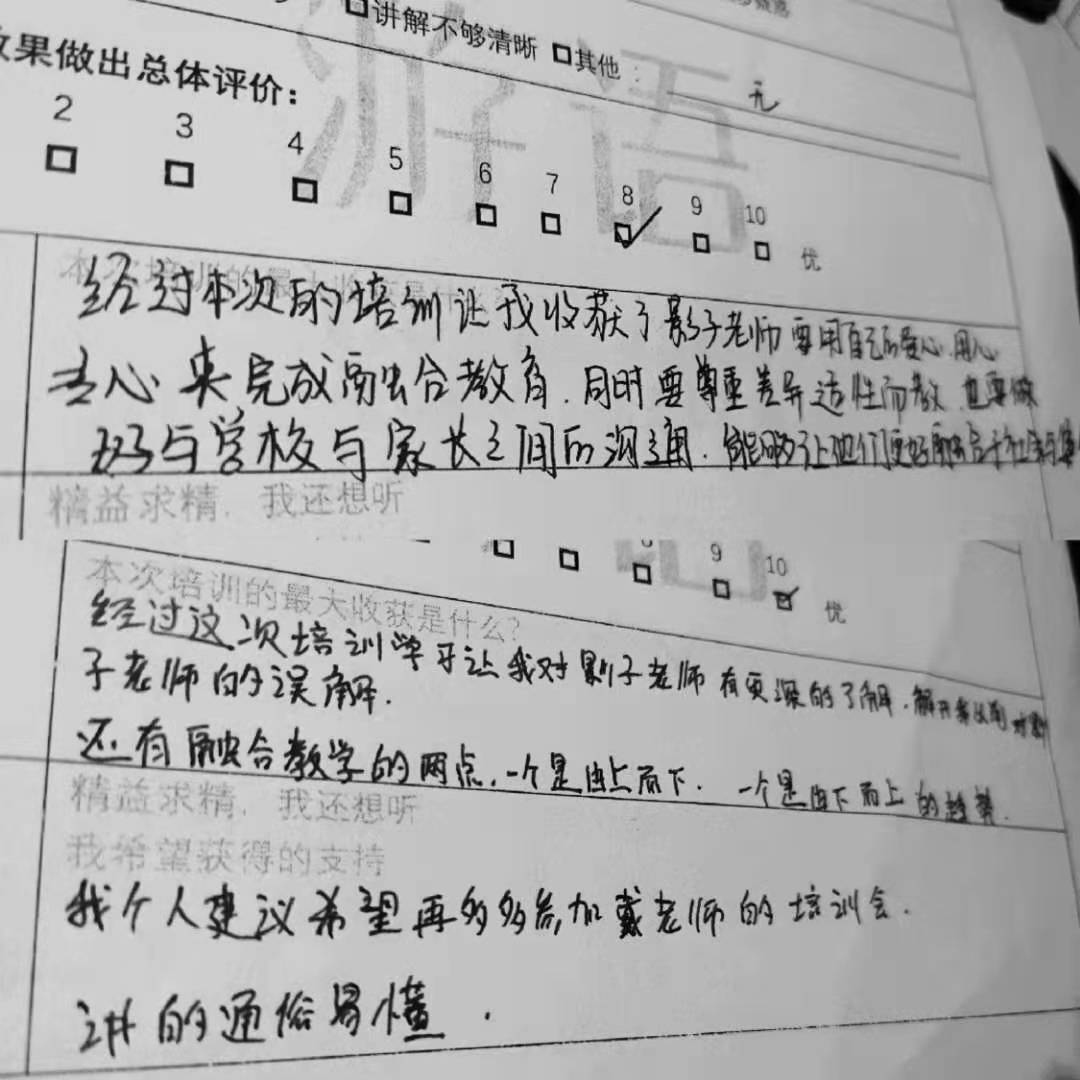 讲解不够清晰 其他： 无
果做出总体评价：
2 3 4 5 6 7 8 9 10 优
游语
本次培训的最大收获是什么
经过本次的培训让我收获了影子老师要用自己的爱心.用心
去心 来完成融合教育.同时要尊重差异适性而教.也要做
好与学校与家长之间的沟通.能够让他们更好融合于社会与集
精益求精，我还想听
9 10 优
本次培训的最大收获是什么？
经过这次培训学习让我对影子老师有更深的了解.解开
子老师的误解.
还有融合教学的两点.一个是由上而下.一个是由下而上的趋势.
精益求精，我还想听
我希望获得的支持
我个人建议希望再多多参加戴老师的培训会.
讲的通俗易懂.